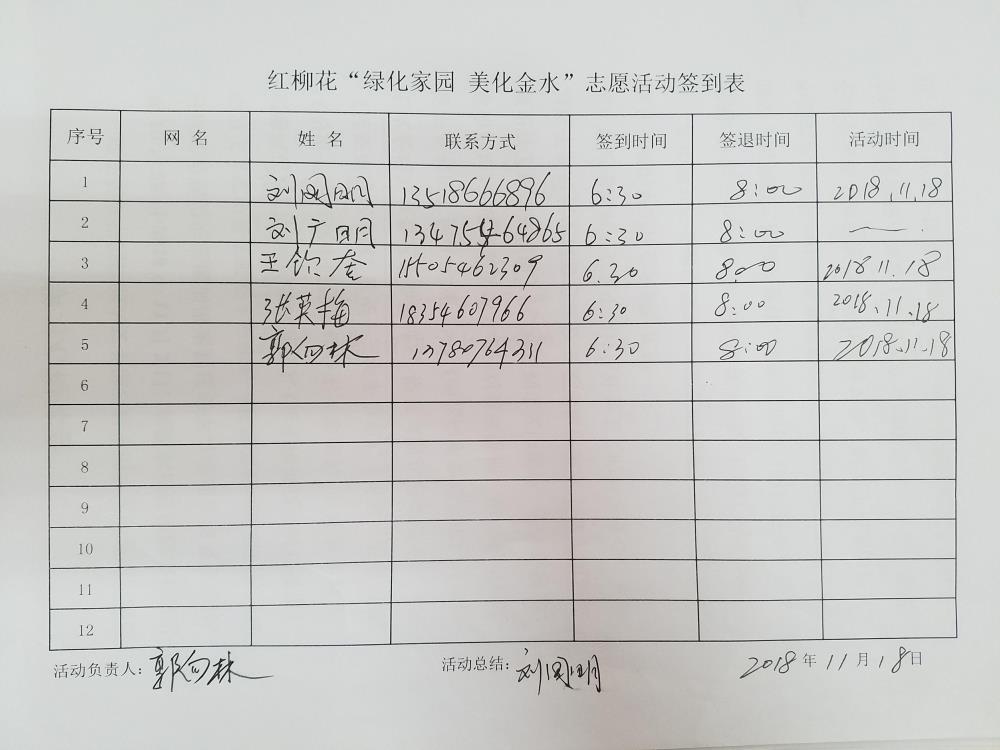 红柳花“绿化家园 美化金水”志愿活动签到表
序号 网 名 姓 名 联系方式 签到时间 签退时间 活动时间
1 刘国明 13518666896 6:30 8:00 2018.11.18
2 刘广明 6:30 8:00 —
3 王 15505462309 6.30 8:00 2018 11.18
4 张英梅 18354607966 6:30 8:00 2018.11.18
5 郭向林 13780764311 6:30 8:00 2018.11.18
6
7
8
9
10
11
12
活动负责人：郭向林 活动总结：刘国明 2018年11月18日